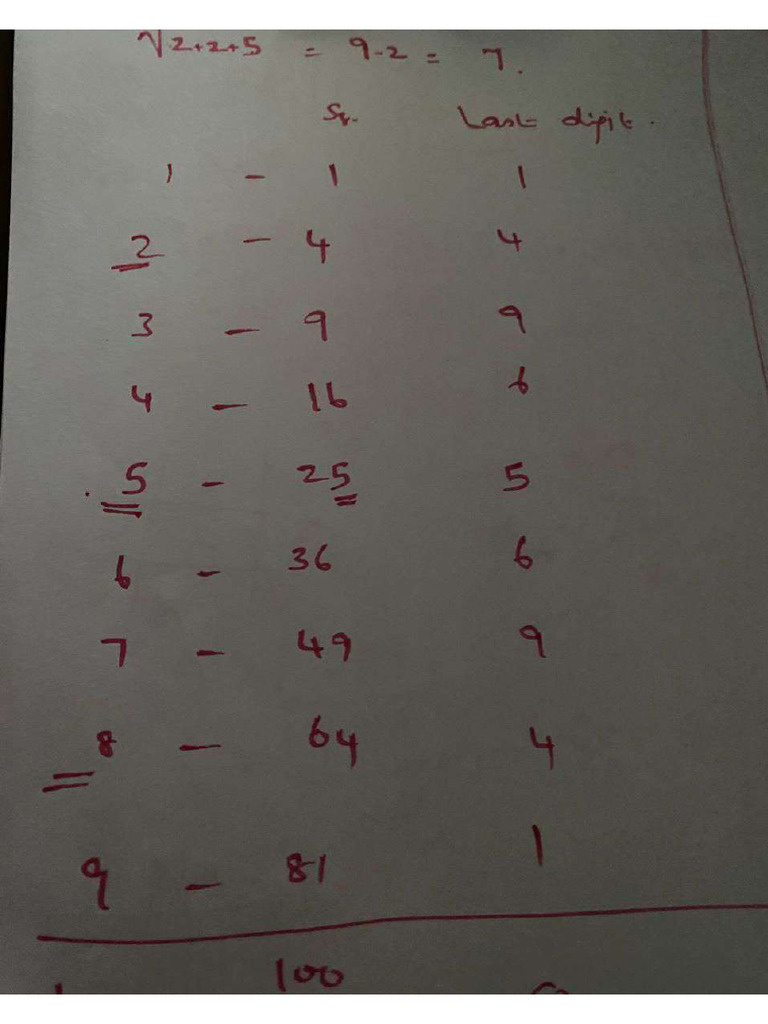 √2+2+5 = 9-2 = 7.
Sq. Last digit.
1 - 1 1
2 - 4 4
3 - 9 9
4 - 16 6
5 - 25 5
6 - 36 6
7 - 49 9
8 - 64 4
9 - 81 1
100